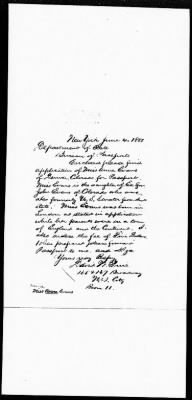 New York June 4, 1880
Department of State
Bureau of Passports
Enclosed please find
application of Miss Anne Evans
of Denver, Colorado for Passport.
Miss Evans is the daughter of Ex Gov
John Evans of Colorado who was
also formerly U.S. Senator from that
state. Miss Evans was born in
London as stated in application
while her parents were on a tour
of England and the Continent. I
also enclose the fee of
When prepared please forward
Passport to me, and
Yours very Resp.
165 & 167 Broadway
N.Y. City
Room 11.
Miss Evans